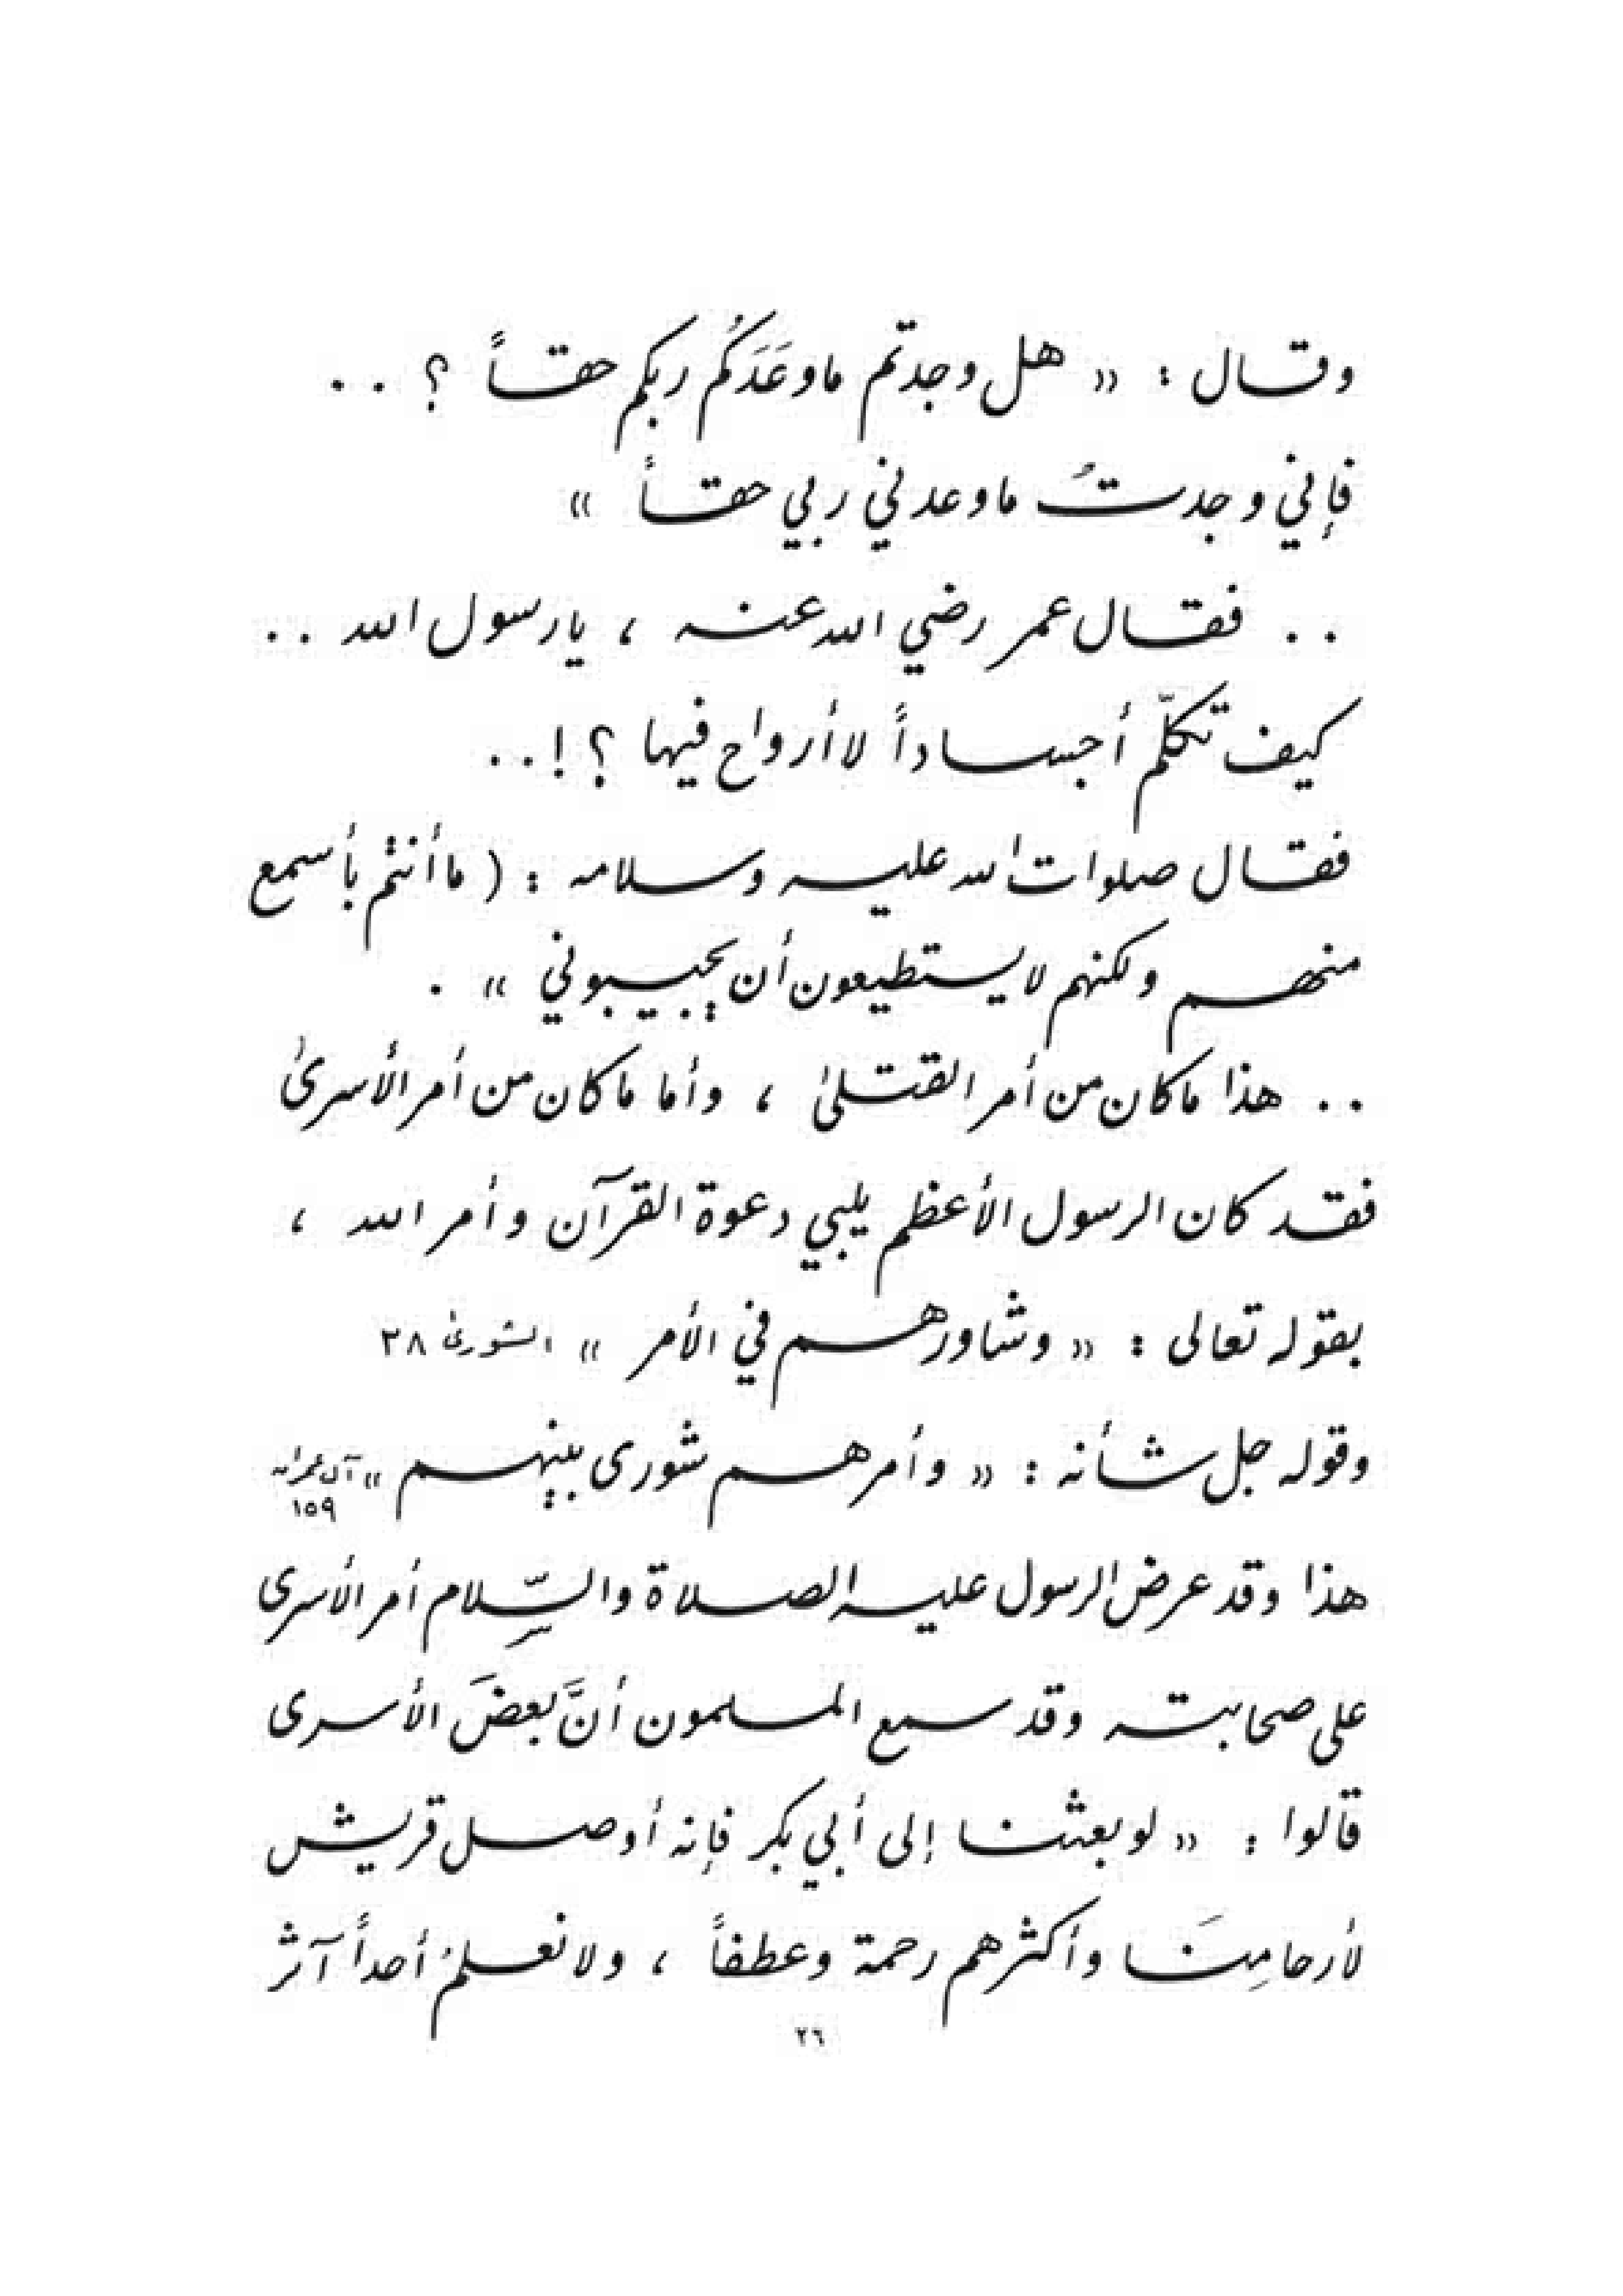 وقال : « هل وجدتم ما وَعَدَكُم ربكم حقاً ؟ . .
فإني وجدتُ ما وعدني ربي حقاً »
. . فقال عمر رضي الله عنه ، يا رسول الله . .
كيف تكلّم أجساداً لا أرواح فيها ؟ ! . .
فقال صلوات الله عليه وسلامه : ( ما أنتم بأسمع
منهم ولكنهم لا يستطيعون أن يجيبوني » .
. . هذا ما كان من أمر القتلىٰ ، وأما ما كان من أمر الأسرىٰ
فقد كان الرسول الأعظم يلبي دعوة القرآن وأمر الله ،
بقوله تعالى : « وشاورهم في الأمر » الشورىٰ ٣٨
وقوله جل شأنه : « وأمرهم شورى بينهم » آل عمران
١٥٩
هذا وقد عرض الرسول عليه الصلاة والسّلام أمر الأسرى
على صحابته وقد سمع المسلمون أنَّ بعضَ الأسرى
قالوا : « لو بعثنا إلى أبي بكر فإنه أوصل قريش
لأرحامِنَا وأكثرهم رحمة وعطفاً ، ولا نعلمُ أحداً آثر
٢٦